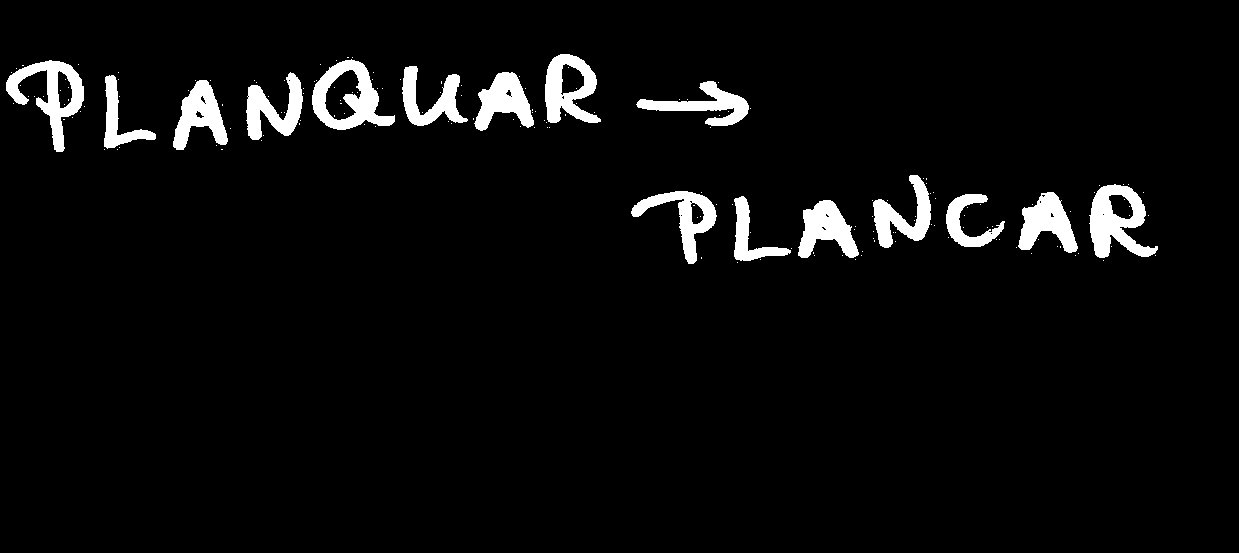 PLANQUAR →
PLANCAR